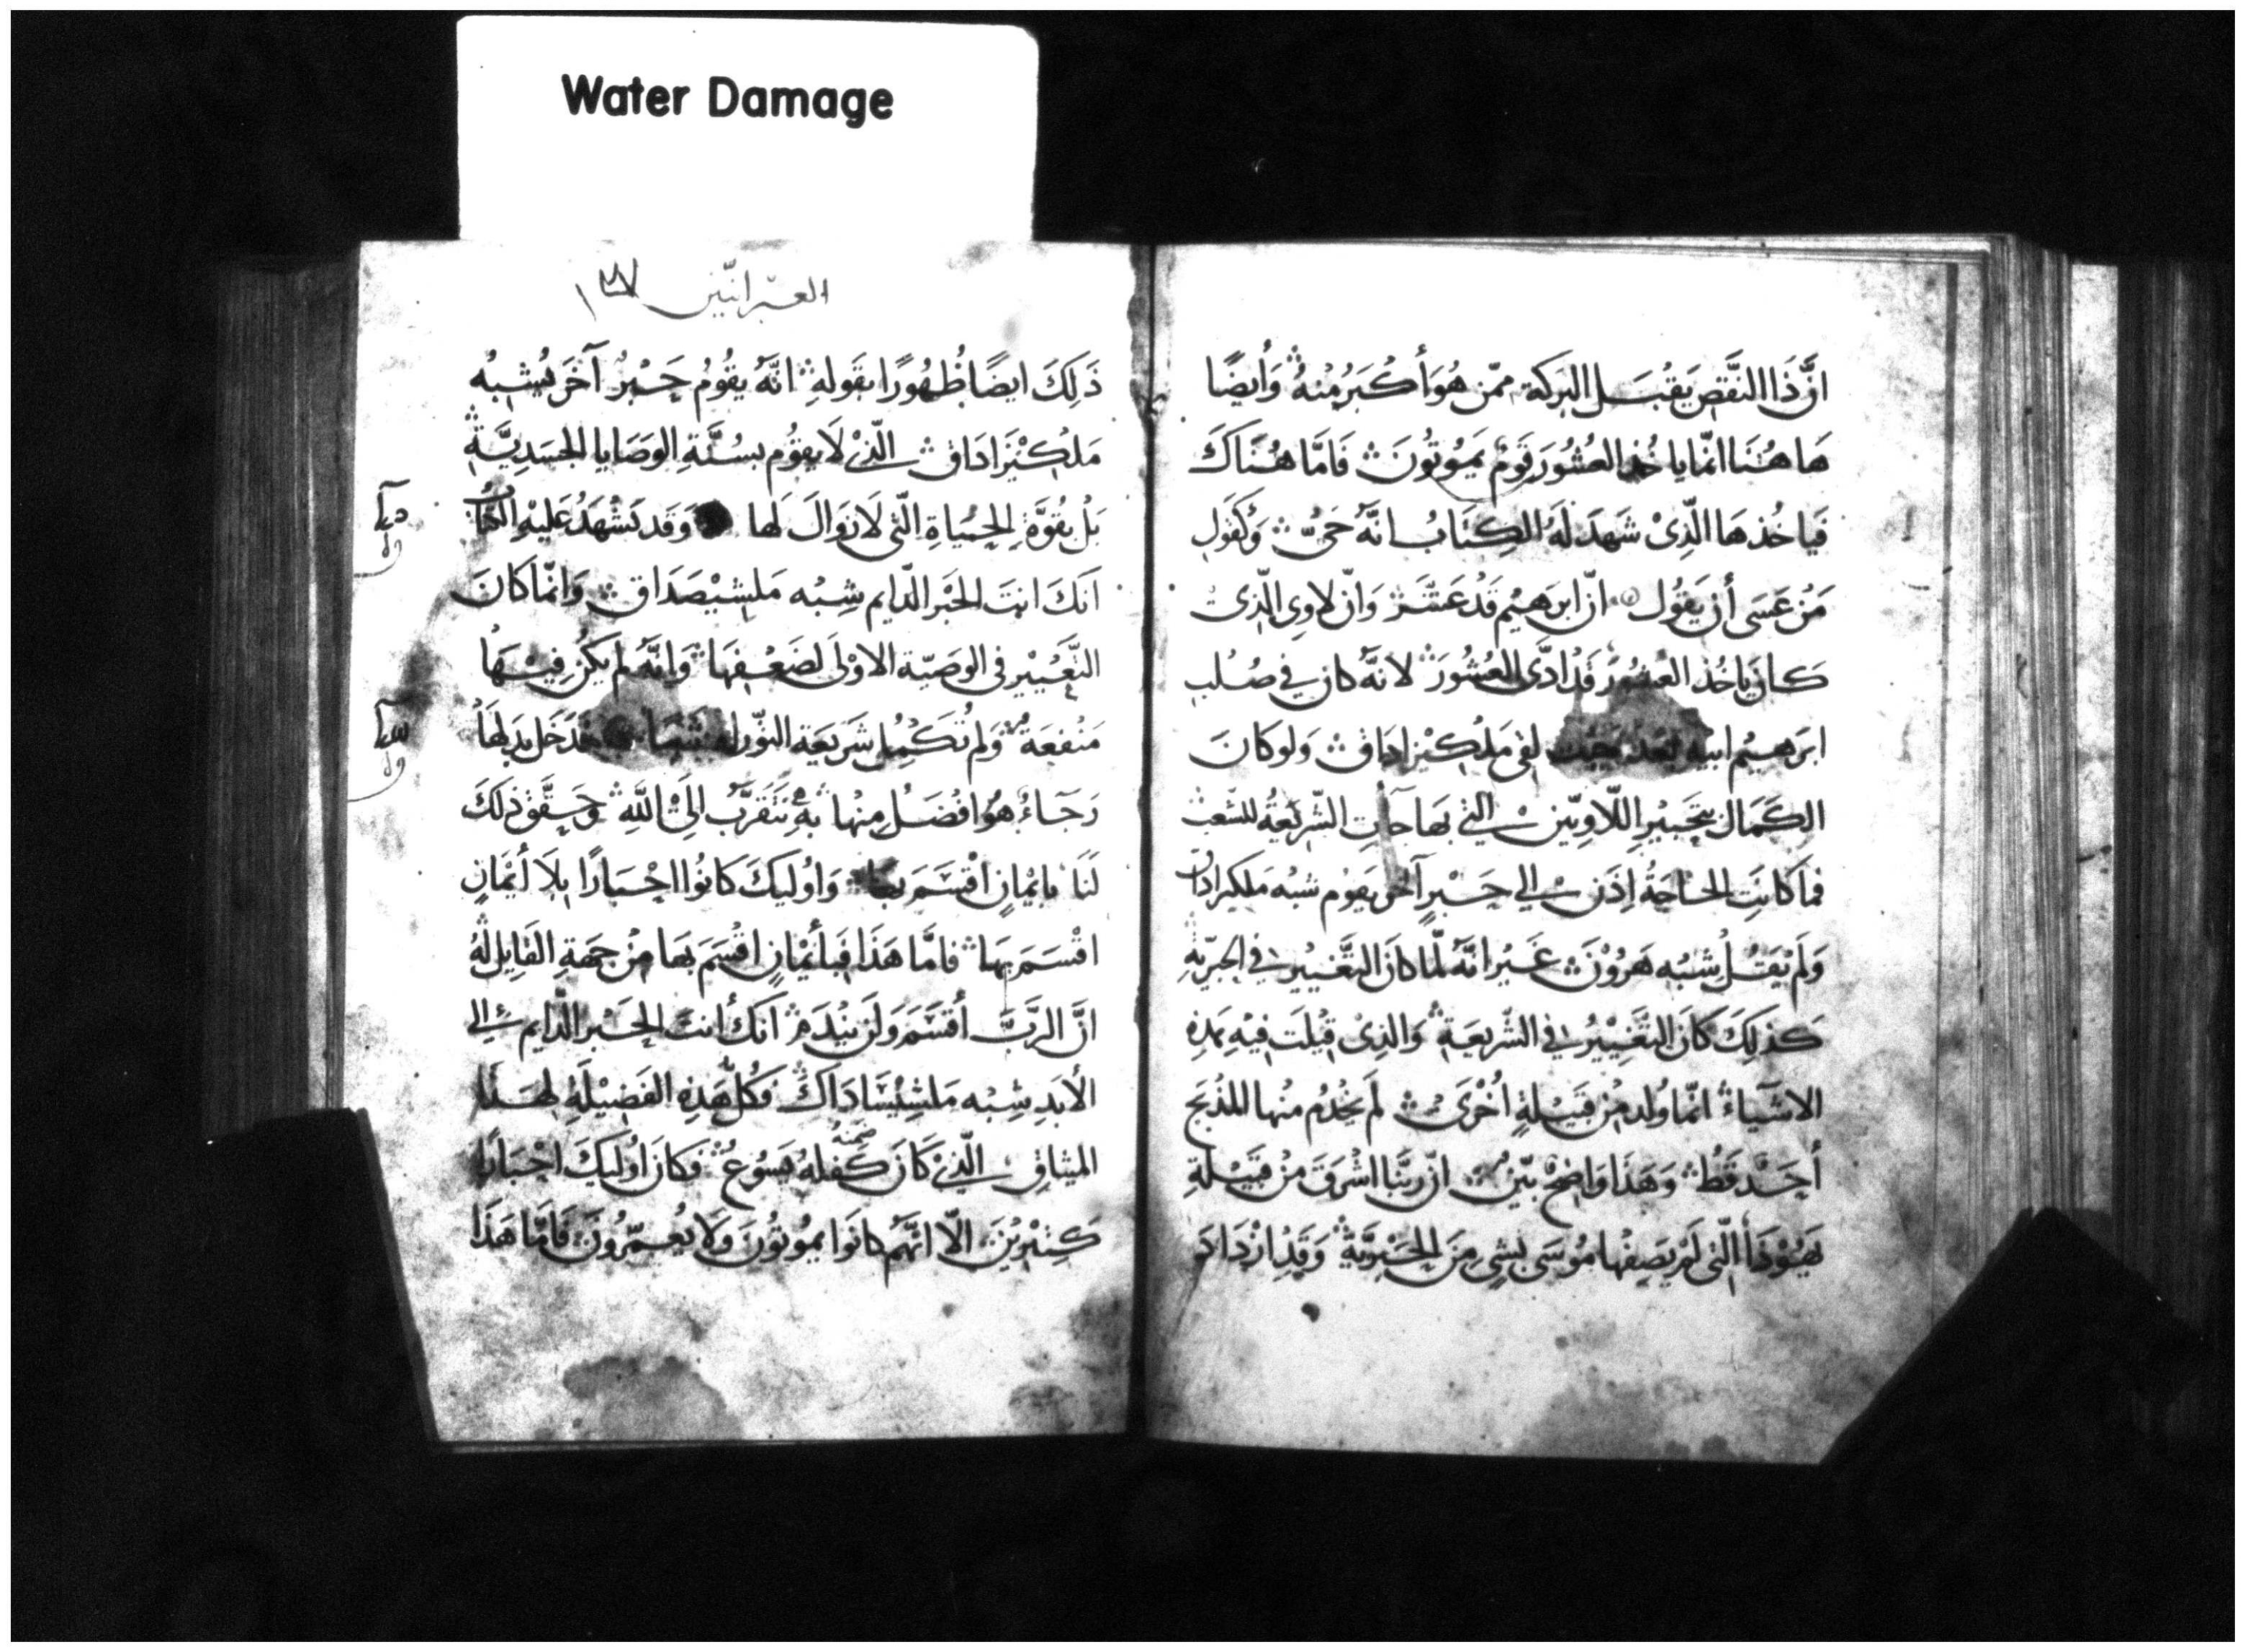 Water Damage
انَّ ذَا النَّقص يَقبَل البَركة ممّن هُوَ أكبَرُ مِنهُ وَأيضًا
هَا هُنَا انّما ياخُذ العُشُورَ قَومٌ يَمُوتُونَ فَامَّا هُنَاكَ
فَياخُذهَا الّذِى شَهدَ لَهُ الكِتَابُ انّهُ حَىٌّ وَكَقَولِ
مَن عَسَى أن يَقُول انّ ابرهيم قَد عَشَّر وَانّ لاوِى الّذِى
كَانَ يَاخُذ العشُورَ قَد ادَّى العُشُورَ لانّهُ كان فى صُلبِ
ابرَهيم ابيه لقى مَلكيزادَاق وَلو كانَ
الكَمَال بتَحبيرِ اللّاوِيّين التى بهَا جآت الشّريعَةُ للشّعب
فما كانَتِ الحاجَةُ إذَن الى حَبْرٍ آخر يَقوم شبْه مَلكيزادَاق
وَلَم يَقُل شِبْه هَرُوْنَ غَير انّهُ لمّا كانَ التَّغيير فى الحبريّةِ
كذلِكَ كانَ التَّغيِيْرُ فى الشّريعَةِ وَالذِى قِيْلت فيْهِ هَذِهِ
الاشيَآء انّما وُلد مِن قَبيْلةٍ اُخْرَى لَم يَخْدُم منْها المَذْبَح
أحَدٌ قَطُ وَهَذا وَاضِحٌ بيّنٌ انّ ربّنا اشْرَقَ مِنْ قَبيْلَةِ
يَهُوْذَا الّتى لَم يَصِفْها مُوسَى بشىٍ مِنَ الحَبْرِيَّةِ وَقَدِ ازْدَادَ
العبرانيّين
ذَلِكَ ايضًا ظُهُورًا بقَولهِ انّهُ يقُومُ حَبْرٌ آخَرَ يُشبهُ
مَلكيْزَادَاق الّذىْ لَا يقوُم بسُنَّةِ الوَصَايا الجَسَدِيَّةِ
بَلْ بقُوَّةِ الحَيَاةِ الّتى لَا زوَالَ لَها وَقَد يَشْهَدُ عَليْهِ الكتابُ
انَكَ انتَ الحَبْر الدّايم شِبْه مَلشيْصَدَاق وَانّما كانَ
التَّغييْر فى الوصيّة الاوْلَى لضَعْفِهَا وَانّهُ لم يَكُن فِيْهَا
مَنْفعَة وَلم تُكَمِّل شَريعَة التّوراه شيًا فدَخَل بدلها
رَجَآءٌ هُوَ افْضَلُ مِنْها بهِ نَتَقرَّب الىَ اللّهِ وحَقَّقَ ذلكَ
لَنَا بايْمَانٍ اقْسَمَ بهَا وَاوُليكَ كانوُا احْبَارًا بلَا أيْمَانٍ
اقْسَمَ بهَا فامَّا هَذَا فَبأيْمَانٍ اقْسَمَ بهَا مِنْ جهَةِ القَايِل لَهُ
انَّ الرَّبَّ أقْسَمَ وَلَن ينْدَم انَكَ أنتَ الحَبْر الدّايم الى
الأبَدِ شِبْه مَلشِيْسَادَاكَ فَكُلّ هَذِهِ الفَضيْلَة لهَذَا
الميثاقِ الّذىْ كانَ كفلهُ يَسُوعُ فكان اوُليكَ احْبَارًا
ضمنهُ
كثيْريْنَ الّا انّهُم كانوَا يموُتوُنَ وَلَا يُعمّرُونَ فَامّا هَذَا